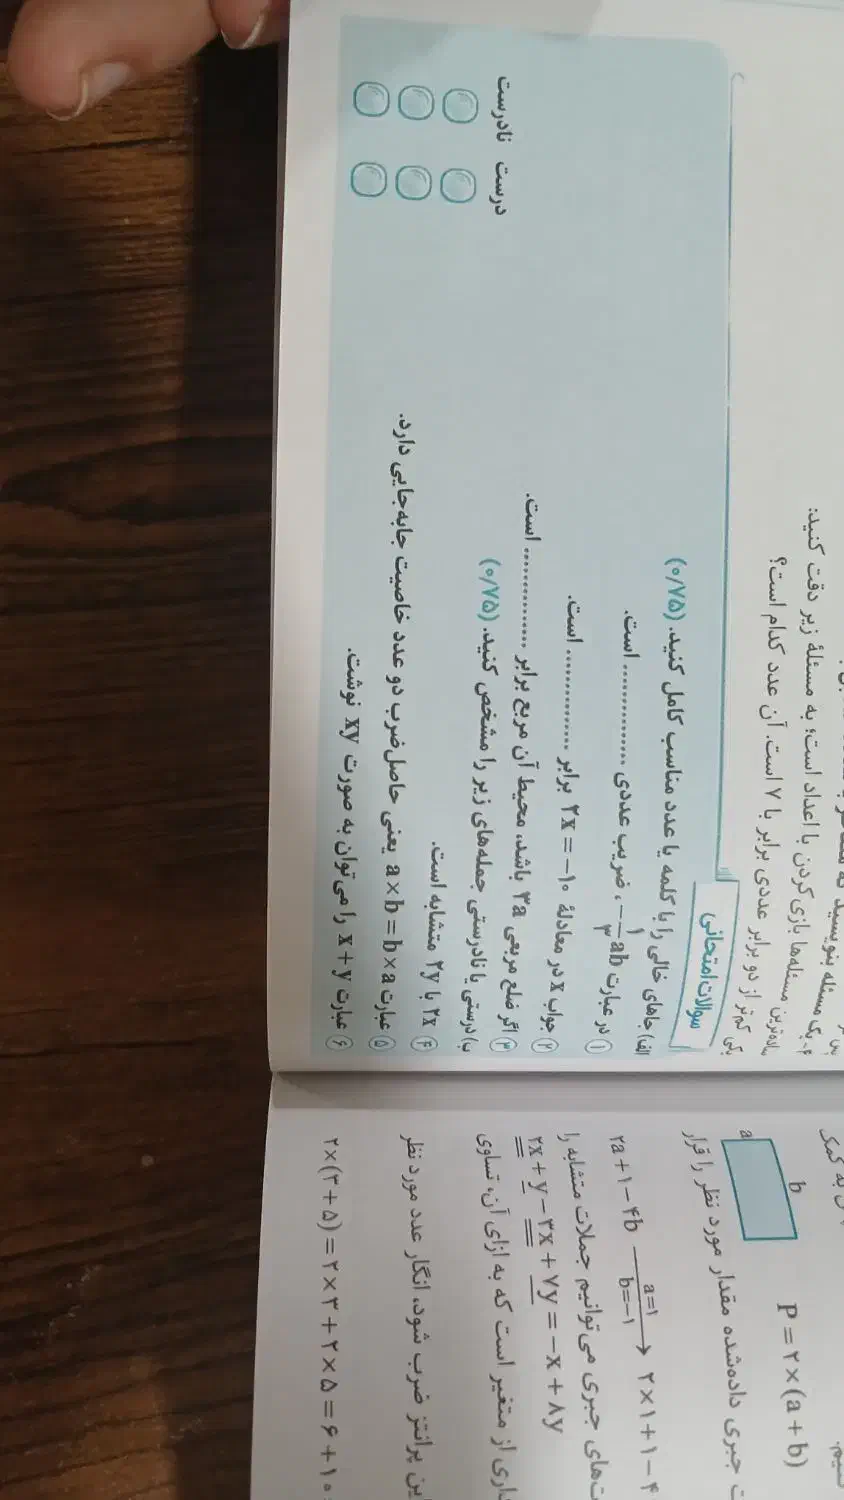 ۴- یک مسئله بنویسید که
ساده‌ترین مسئله‌ها بازی کردن با اعداد است؛ به مسئلهٔ زیر دقت کنید:
یکی کم‌تر از دو برابر عددی برابر با ۷ است. آن عدد کدام است؟
سوالات امتحانی
الف) جاهای خالی را با کلمه یا عدد مناسب کامل کنید. (۰/۷۵)
۱ در عبارت −۱/۳ab، ضریب عددی ................ است.
۲ جواب x در معادلهٔ ۲x = −۱۰ برابر ................ است.
۳ اگر ضلع مربعی ۳a باشد، محیط آن مربع برابر ................ است.
ب) درستی یا نادرستی جمله‌های زیر را مشخص کنید. (۰/۷۵)
درست نادرست
۴ ۲x با ۲y متشابه است.
۵ عبارت a × b = b × a یعنی حاصل‌ضرب دو عدد خاصیت جابه‌جایی دارد.
۶ عبارت x + y را می‌توان به صورت xy نوشت.
به کمک
b
a
P = ۲ × (a + b)
ت جبری داده‌شده مقدار مورد نظر را قرار
۲a + ۱ − ۴b a=۱ b=−۱ → ۲ × ۱ + ۱ − ۴
ت‌های جبری می‌توانیم جملات متشابه را
۲x + y − ۳x + ۷y = −x + ۸y
از متغیر است که به ازای آن، تساوی
این پرانتز ضرب شود، انگار عدد مورد نظر
۲ × (۳ + ۵) = ۲ × ۳ + ۲ × ۵ = ۶ + ۱۰